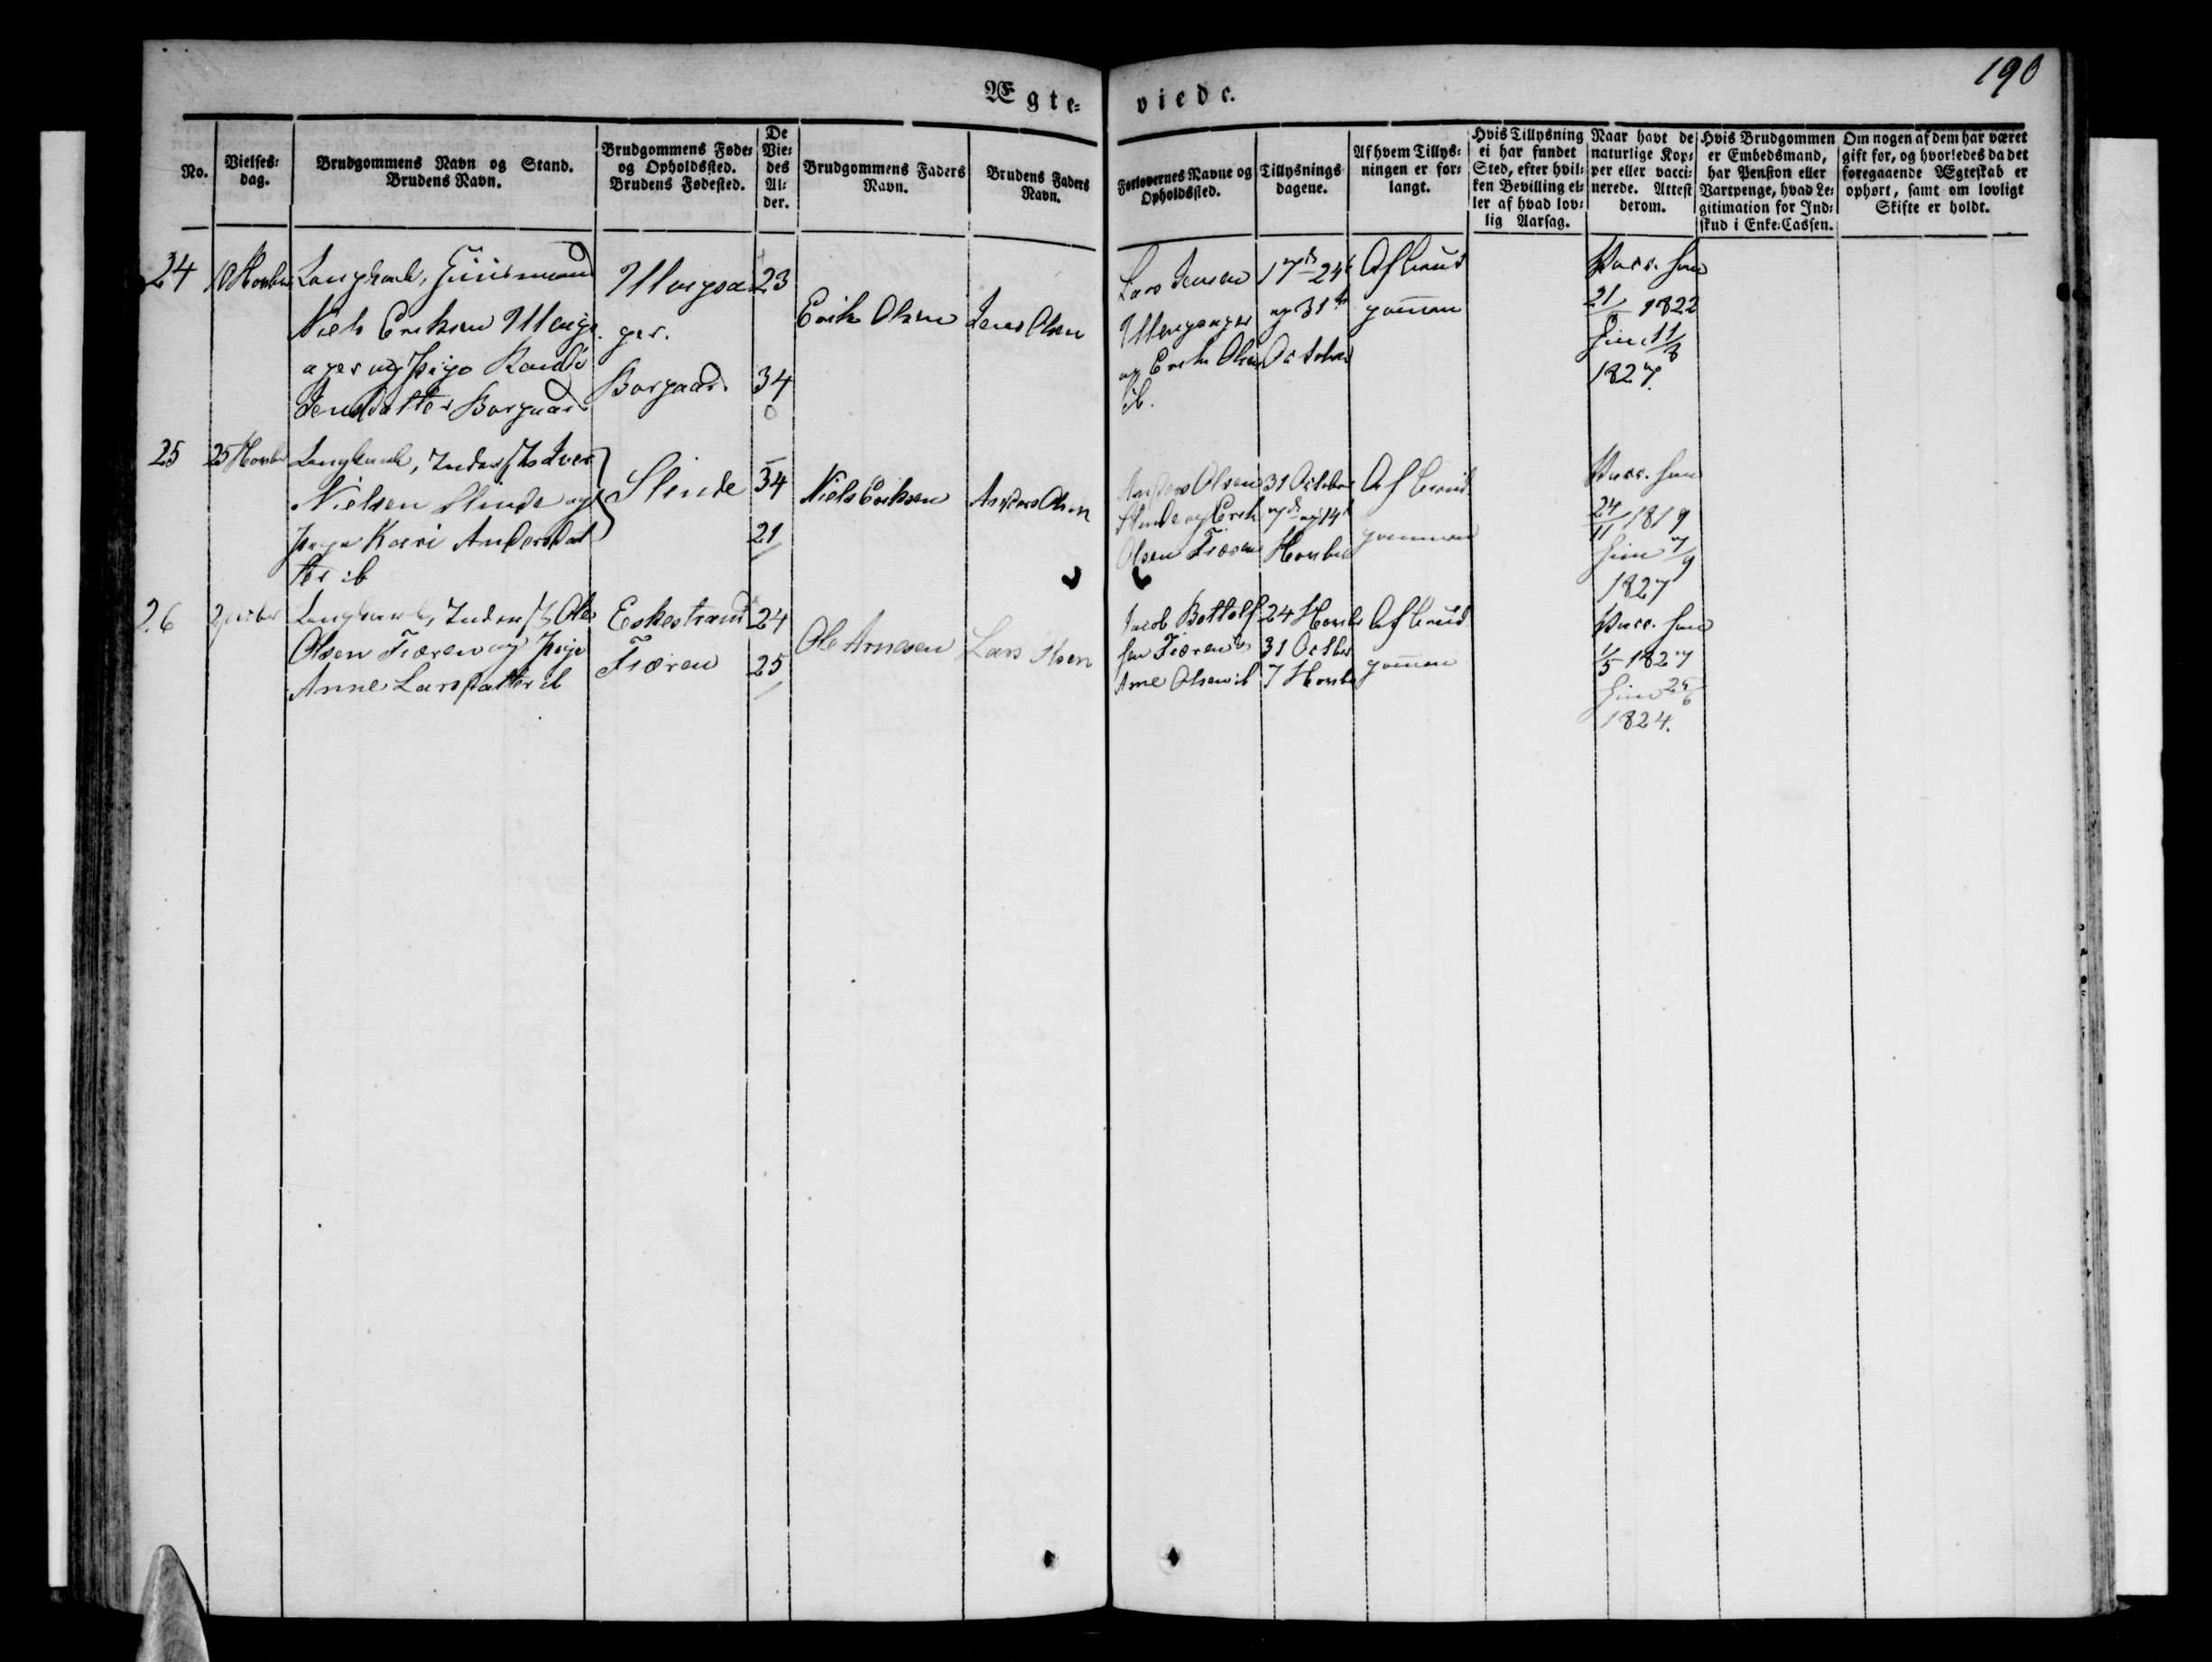 190
Ægte=
viede.
No.
Vielses=
dag.
Brudgommens Navn og Stand.
Brudens Navn.
Brudgommens Føde=
og Opholdssted.
Brudens Fødested.
De
Vie=
des
Al=
der.
Brudgommens Faders
Navn.
Brudens Faders
Navn.
Forlovernes Navne og
Opholdssted.
Tillysnings
dagene.
Af hvem Tillys=
ningen er for=
langt.
Hvis Tillysning
ei har fundet
Sted, efter hvil=
ken Bevilling el=
ler af hvad lov=
lig Aarsag.
Naar havt de
naturlige Kop=
per eller vacci=
nerede. Attest
derom.
Hvis Brudgommen
er Embedsmand,
har Pension eller
Vartpenge, hvad Le=
gitimation for Ind=
skud i Enke=Cassen.
Om nogen af dem har været
gift før, og hvorledes da det
foregaaende Ægteskab er
ophørt, samt om lovligt
Skifte er holdt.
24
10 Novbr
Ungkarl, Huusmand
Niels Eriksen
ager og Pige
Jensdatter Borgaar
ger.
Borgaar
23
34
Erik Olsen
Jens Olsen
Lars Jensen
og Erik Olsen
ib.
17de 24
og 31te
October
Af Brud
gommen
Vacc. han
21/ 1822
hun 11/8
1827
25
25 Novbr
Ungkarl, Iver
Nielsen Slinde og
Pige Kari Andersdat
ter ib
Slinde
34
21
Niels Eriksen
Anders Olsen
Anders Olsen
Slinde og Erik
Olsen Fiæren
31 October
7de og 14
Novbr
Af Brud
gommen
Vacc. han
24/11 1819
hun 7/9
1827
26
Ungkarl, Ole
Olsen Fiæren og Pige
Anne Larsdatter ib
Eskestrand
Fiæren
24
25
Ole Arnesen
Lars Olsen
Jacob Bottolf
sen Fiæren og
Arne Olsen ib
24 Novbr
31 Octbr
7 Novbr
Af Brud
gommen
Vacc. han
1/5 1827
hun 25/6
1824.